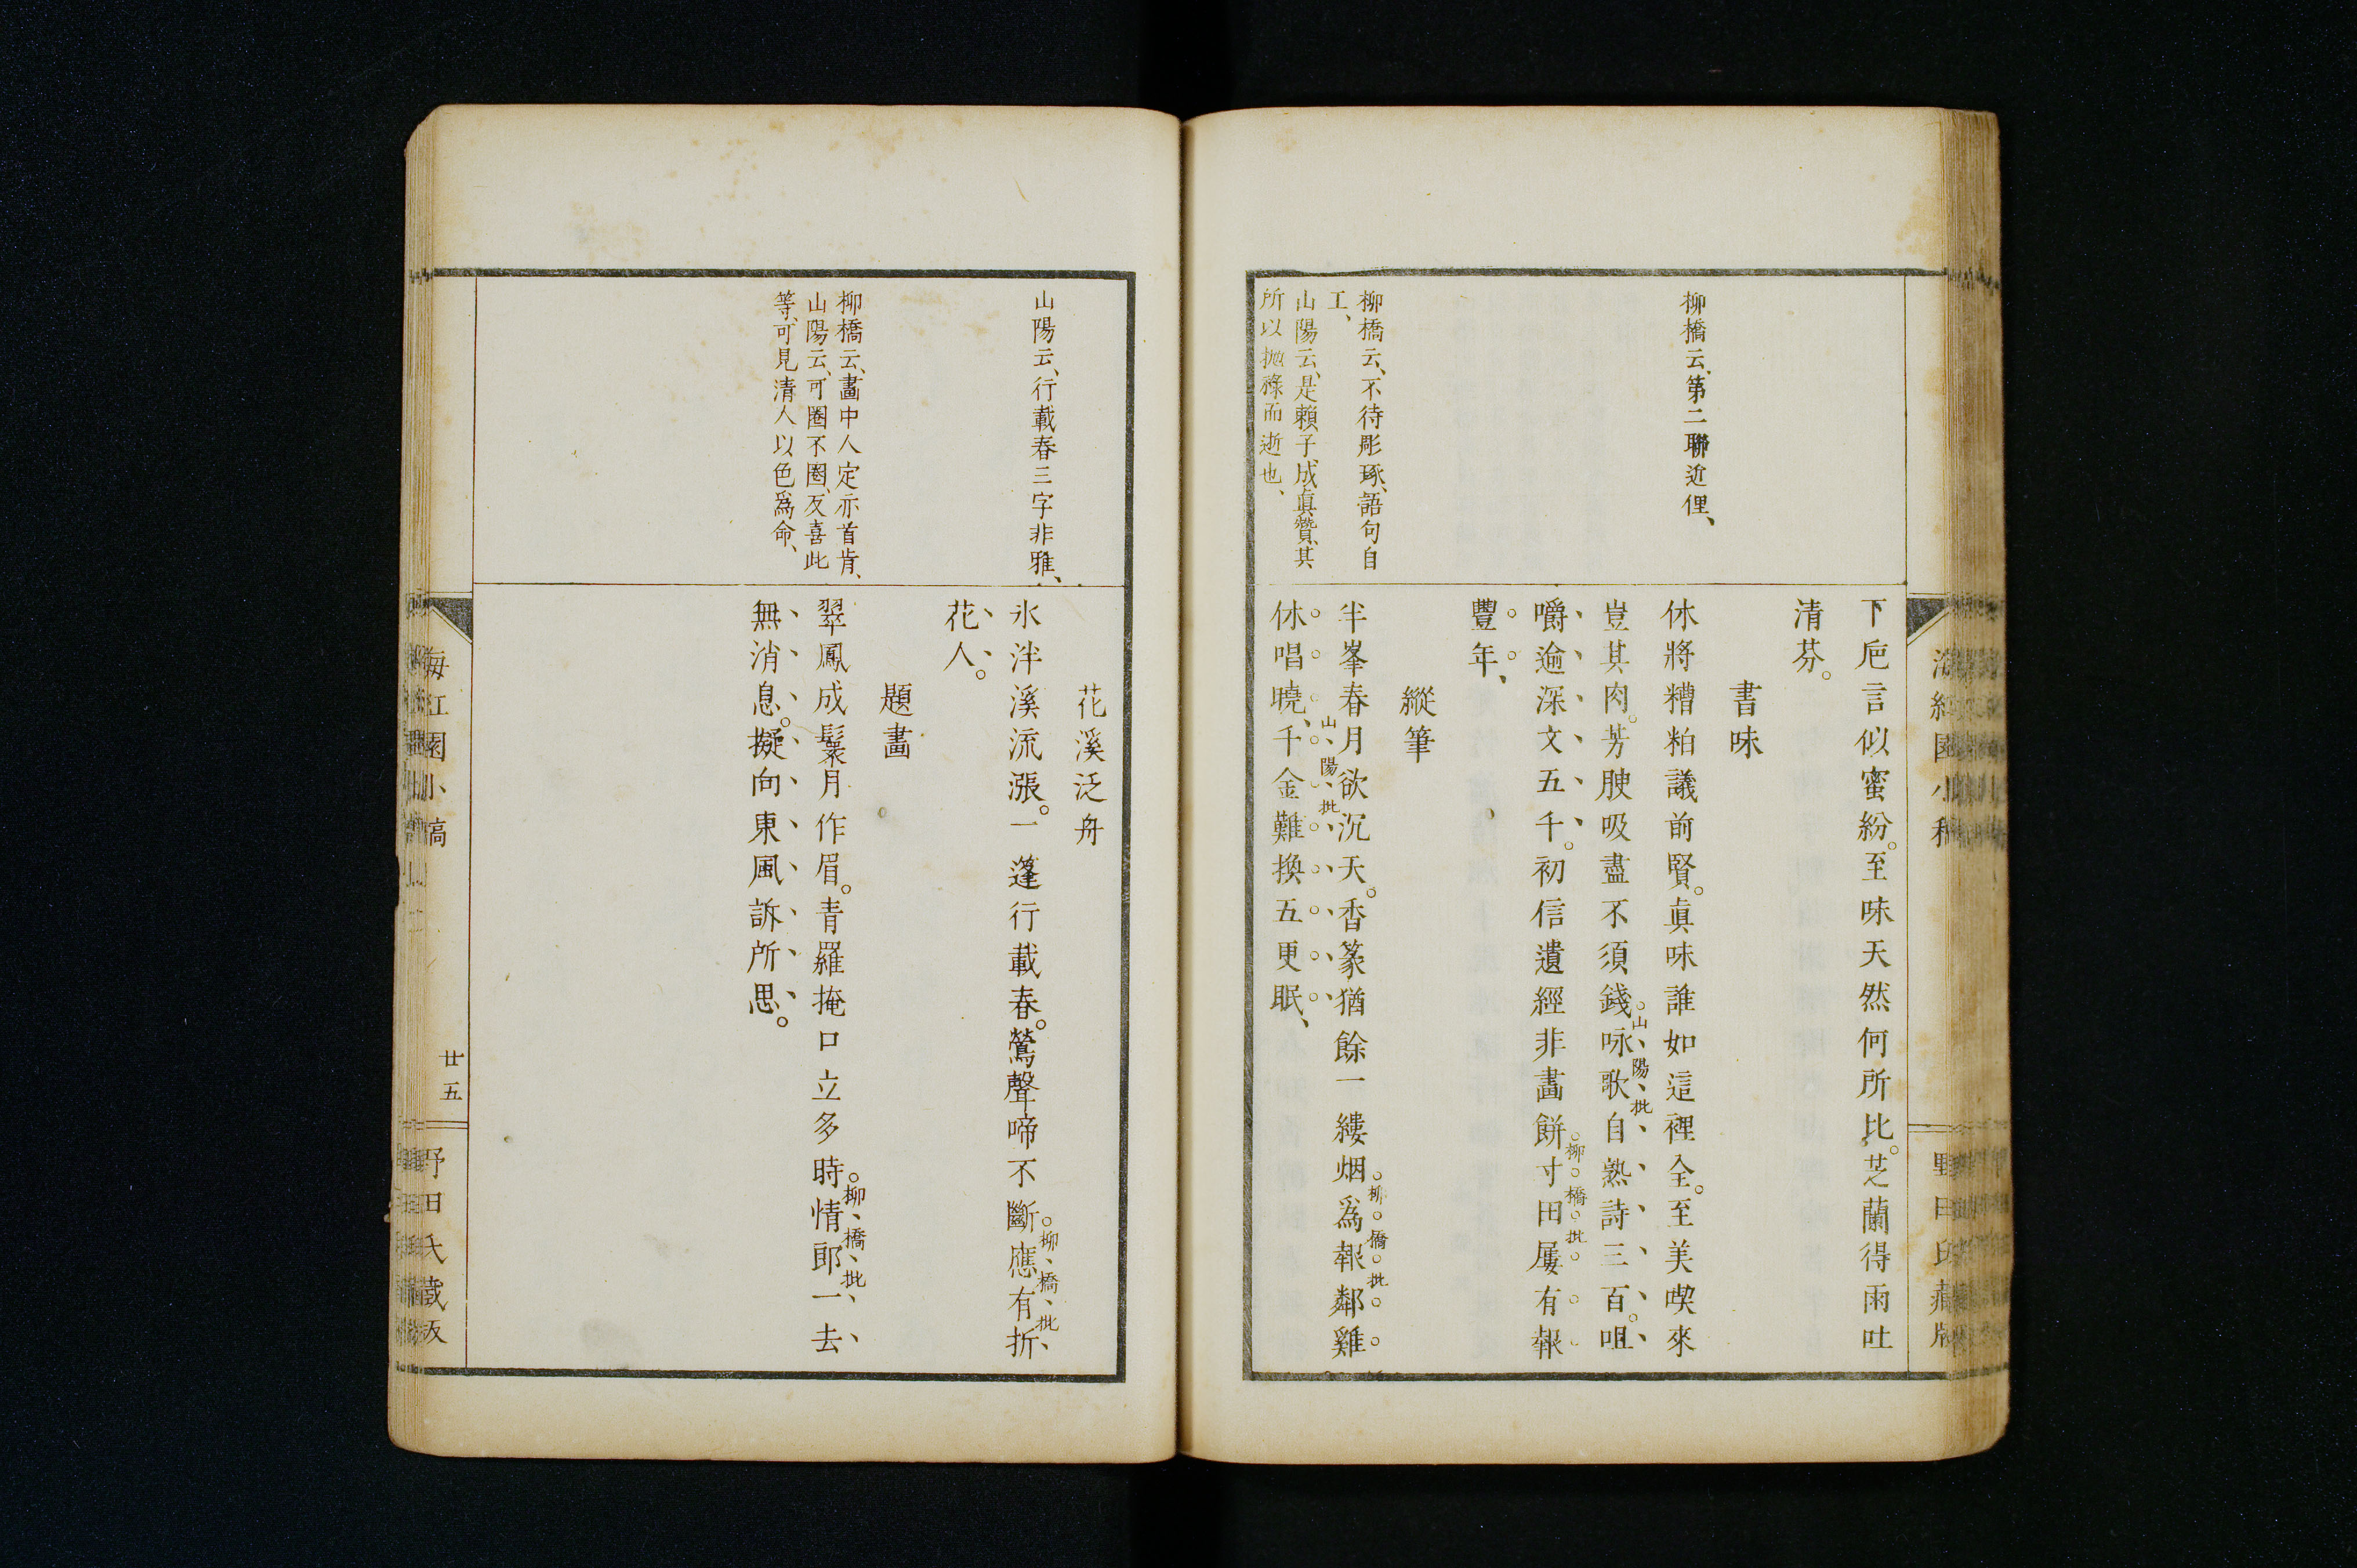 柳橋云、第二聯近俚、
柳橋云、不待彫琢、語句自
工、
山陽云、是賴子成眞贊、其
所以拋祿而逝也、
下巵言似蜜紛。至味天然何所比。芝蘭得雨吐
清芬。
書味
休將糟粕議前賢。眞味誰如這裡全。至美喫來
豈其肉。芳腴吸盡不須錢。咏歌自熟詩三百。咀
山陽批
嚼逾深文五千。初信遺經非畫餅。寸田屢有報
柳橋批
豐年、
縱筆
半峯春月欲沉天。香篆猶餘一縷烟。爲報鄰雞
柳橋批
休唱曉、千金難換五更眠、
山陽批
海紅園小稿
野田氏藏版
山陽云、行載春三字非雅、
柳橋云、畫中人定亦首肯、
山陽云、可圈不圈、反喜此
等、可見清人以色爲命、
花溪泛舟
氷泮溪流漲。一蓬行載春。鶯聲啼不斷。應有折
柳橋批
花人。
題畫
翠鳳成鬟月作眉。青羅掩口立多時。情郎一去
柳橋批
無消息。擬向東風訴所思。
海紅園小稿
廿五
野田氏藏版